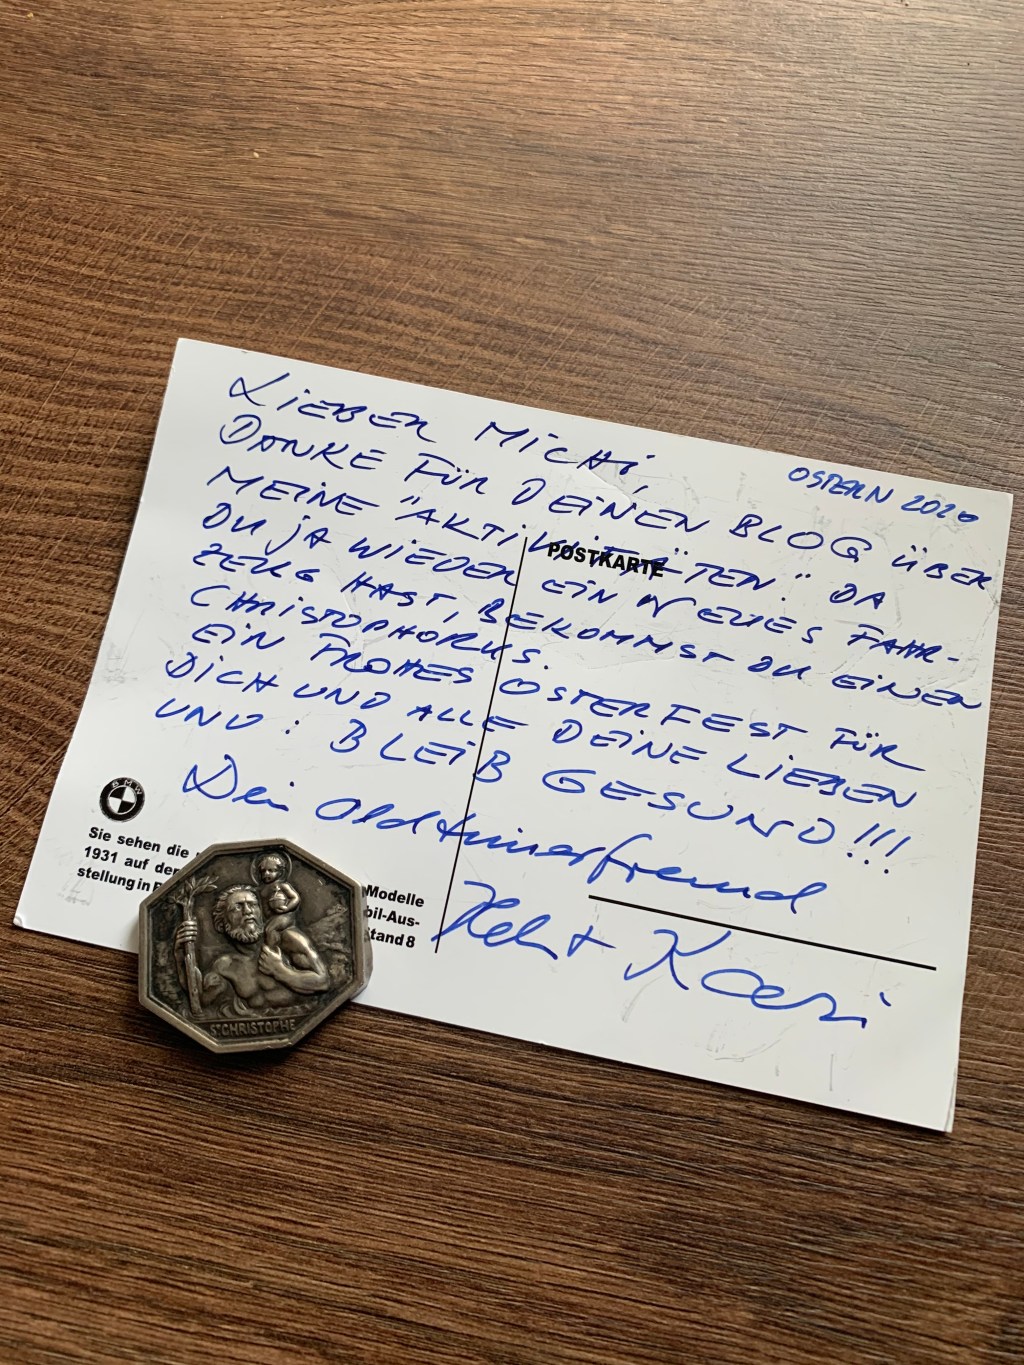 OSTERN 2020
LIEBER MICHI,
DANKE FÜR DEINEN BLOG ÜBER
MEINE "AKTIVITÄTEN." DA
DU JA WIEDER EIN NEUES FAHR-
ZEUG HAST, BEKOMMST DU EINEN
CHRISTOPHORUS.
EIN FROHES OSTERFEST FÜR
DICH UND ALLE DEINE LIEBEN
UND: BLEIB GESUND!!!
Dein Oldtimerfreund
POSTKARTE
BMW
Sie sehen die Modelle
1931 auf der bil-Aus-
stellung in tand 8
ST CHRISTOPHE